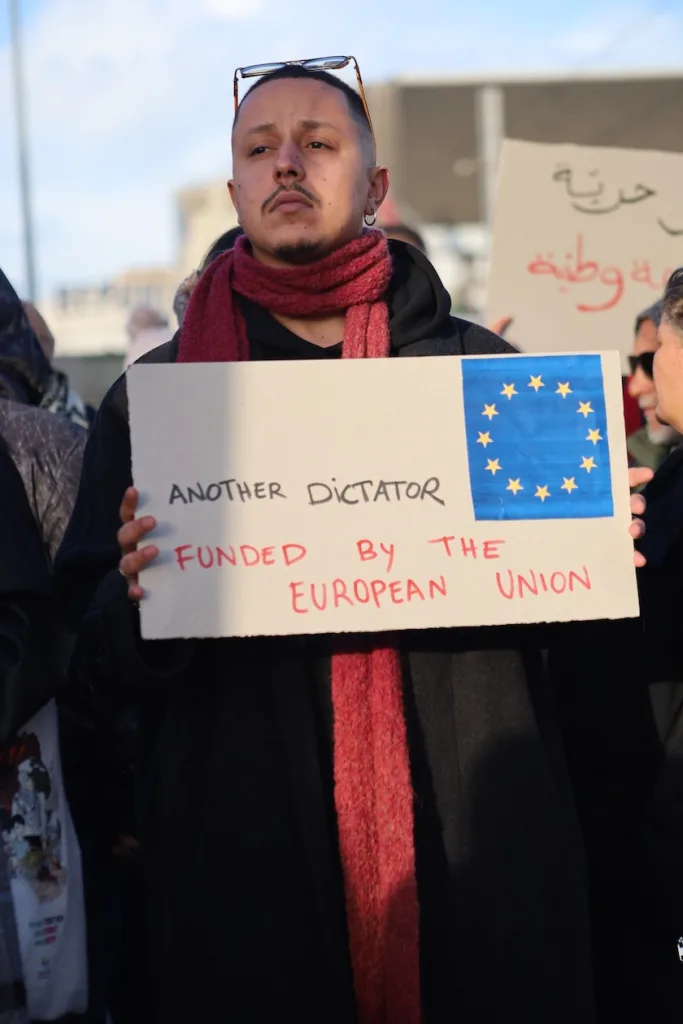 ANOTHER DICTATOR
FUNDED BY THE
EUROPEAN UNION
حريّة
وطنية